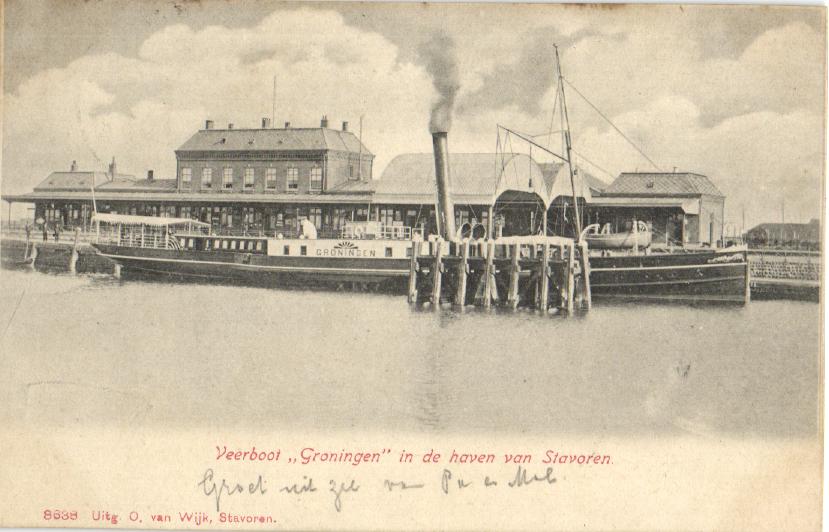 GRONINGEN
Veerboot „Groningen" in de haven van Stavoren.
Groet uit zee van Pa en Moe.
8638 Uitg. O. van Wijk, Stavoren.